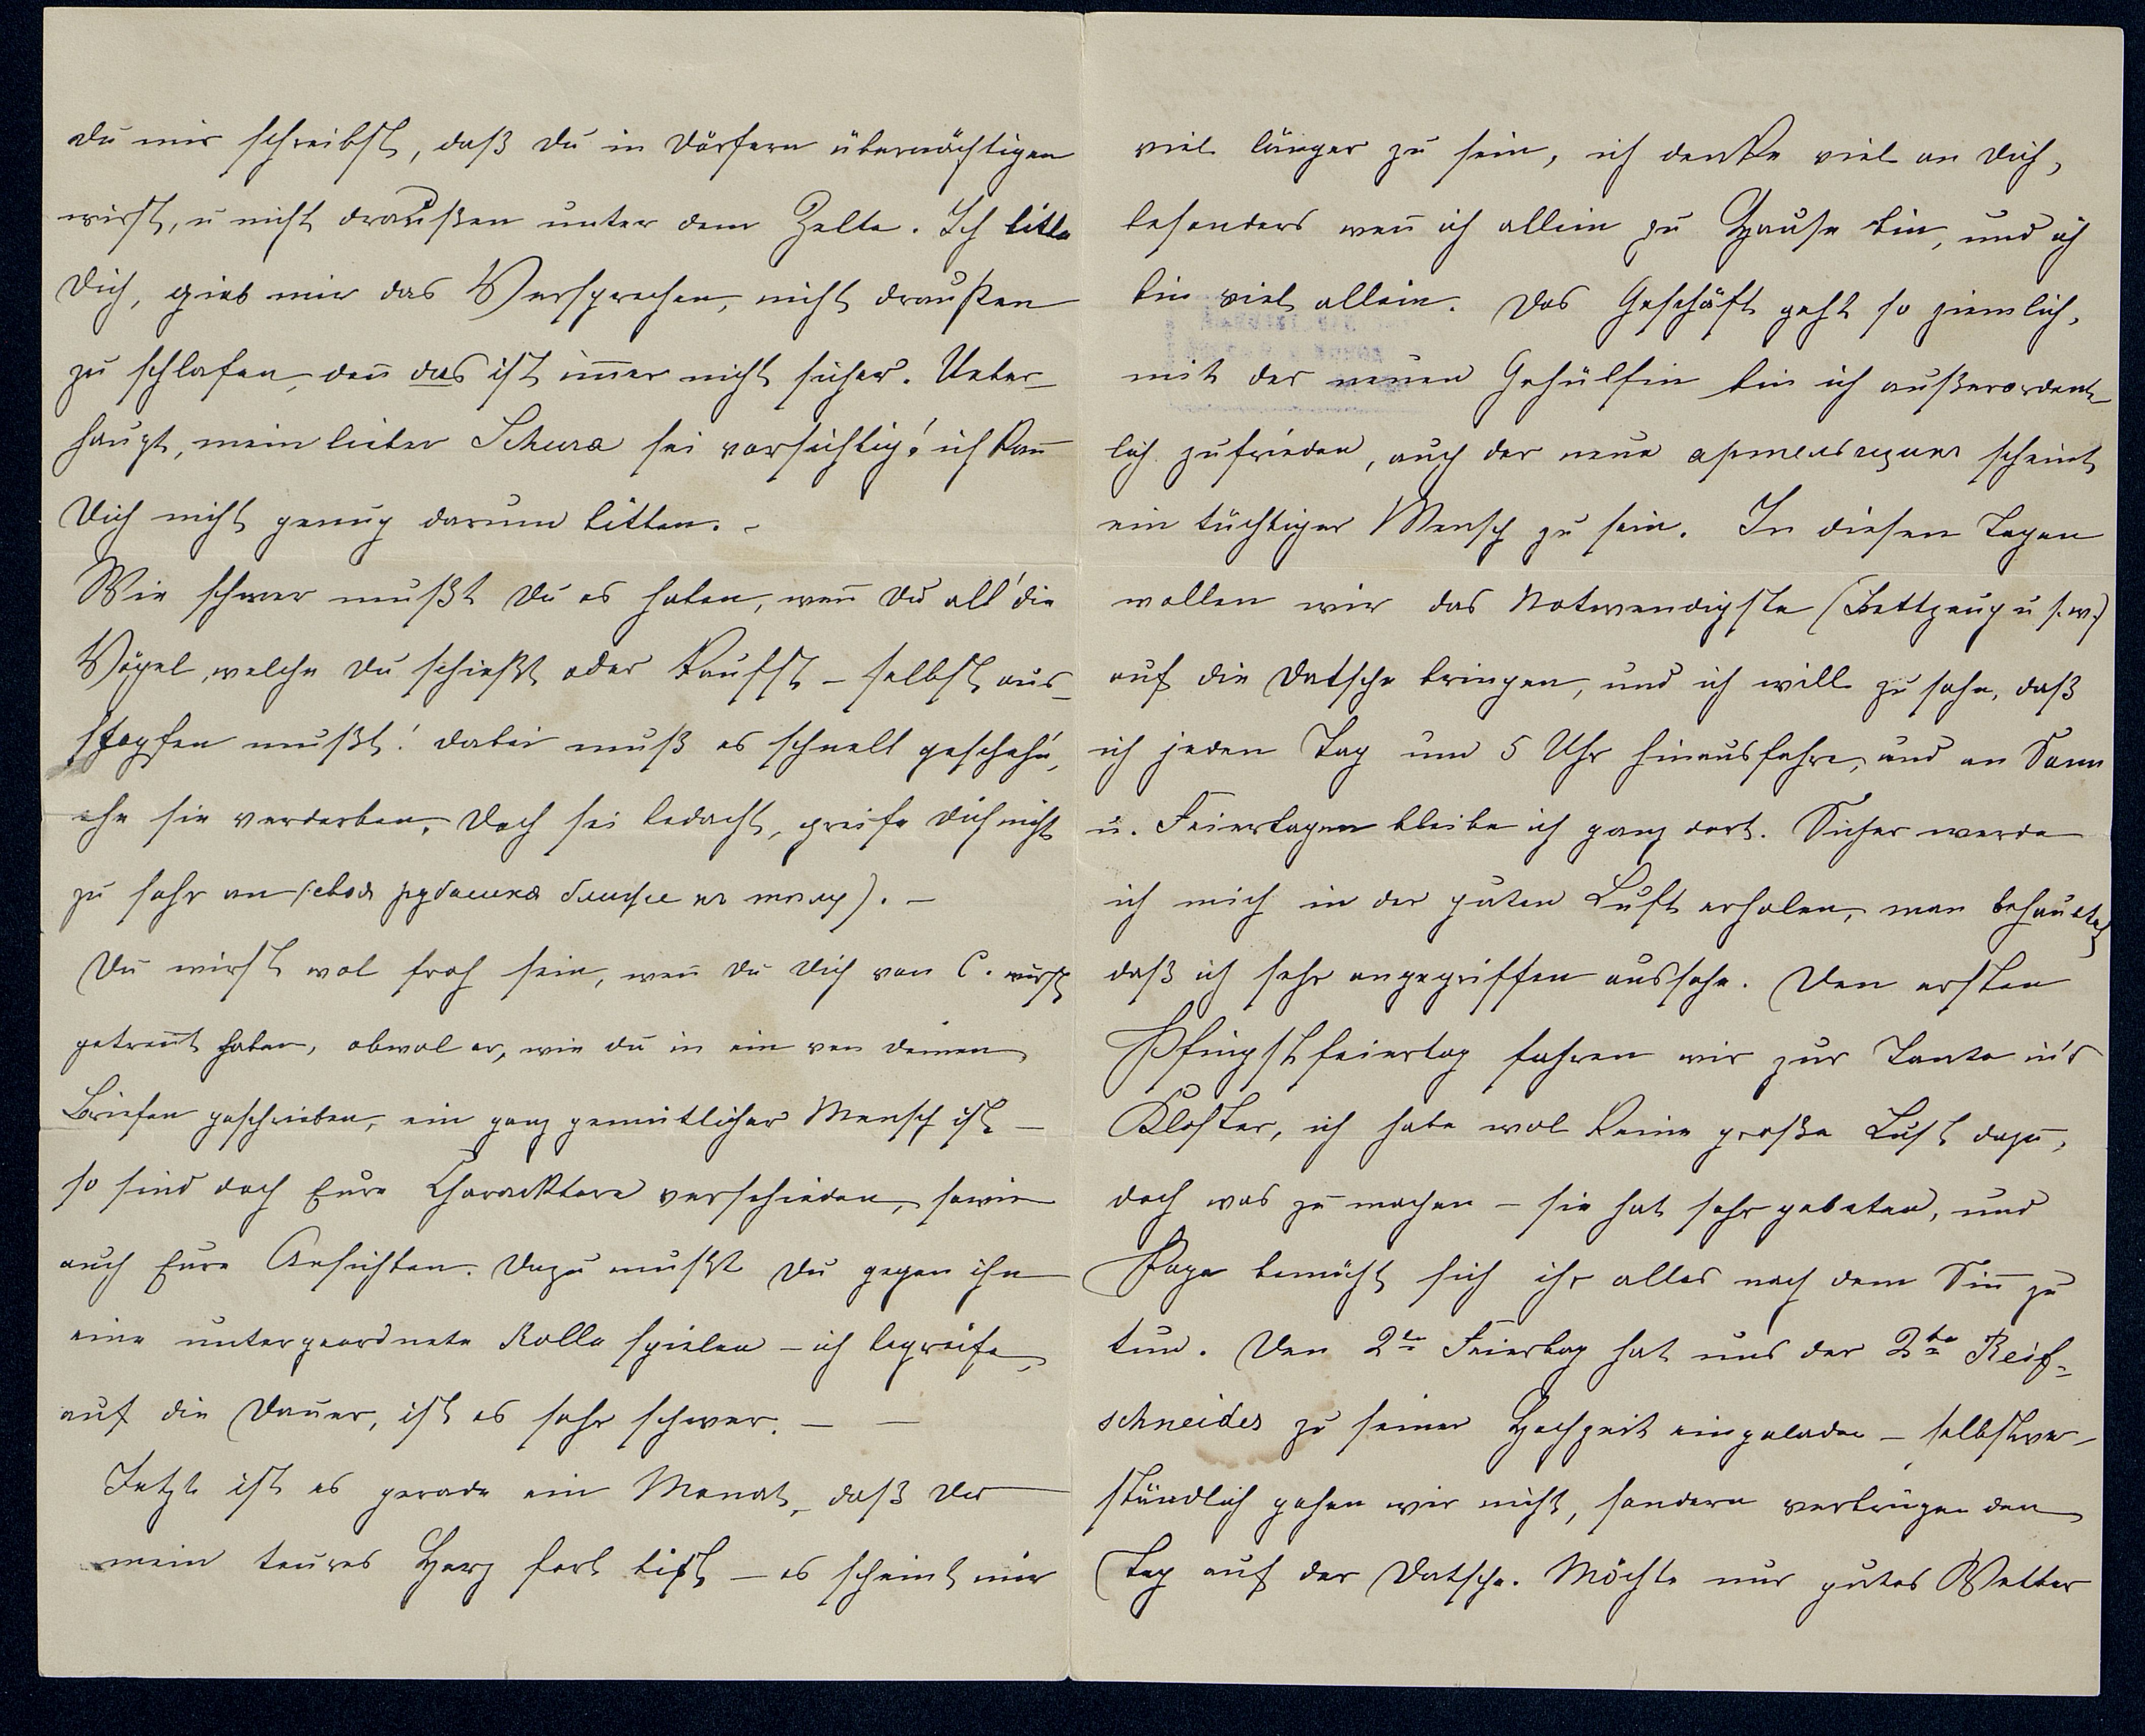 du mir schreibst, daß du in Dörfern übernächtigen
wirst, u nicht draußen unter dem Zelte. Ich bitte
Dich, gieb mir das Versprechen, nicht draußen
zu schlafen, den̄ das ist im̄er nicht sicher. Ueber-
haupt, mein lieber Schura sei vorsichtig! ich kan̄
Dich nicht genug darum bitten. -
Wie schwer mußt Du es haben, wen̄ Du all' die
Vögel, welche Du schießt oder kaufst - selbst aus-
stopfen mußt! dabei muß es schnell gescheh'n,
ehe sie verderben. Doch sei bedacht, greife Dich nicht
zu sehr an (своя рубашка ближе къ телу). -
Du wirst wol froh sein, wen̄ Du Dich von C. wirst
getren̄t haben, obwol er, wie du in ein von deinen
Briefen geschrieben, ein ganz gemütlicher Mensch ist -
so sind doch Eure Characktere verschieden, sowie
auch Eure Ansichten. Dazu mußt Du gegen ihn
eine untergeordnete Rolle spielen - ich begreife,
auf die Dauer, ist es sehr schwer. - -
Jetzt ist es gerade ein Monat, daß Du
mein teures Herz fort bist - es scheint mir
viel länger zu sein, ich denke viel an Dich,
besonders wen̄ ich allein zu Hause bin, und ich
bin viel allein. Das Geschäft geht so ziemlich,
mit der neuen Gehülfin bin ich außerordent-
lich zufrieden, auch der neue артельщикъ scheint
ein tüchtiger Mensch zu sein. In diesen Tagen
wollen wir das Notwendigste (Bettzeug u s.w.)
auf die Datsche bringen, und ich will zu sehn, daß
ich jeden Tag um 5 Uhr hinausfahre, und an Sonn
u. Feiertagen bleibe ich ganz dort. Sicher werde
ich mich in der guten Luft erholen, man behautet
daß ich sehr angegriffen aussehe. Den ersten
Pfingstfeiertag fahren wir zur Tante in's
Kloster, ich habe wol keine große Lust dazu,
doch was zu machen - sie hat sehr gebeten, und
Papa bemüht sich ihr alles nach dem Sin̄ zu
tun. Den 2te Feiertag hat uns der 2te Reif-
schneider zu seiner Hochzeit eingeladen - selbstver-
ständlich gehen wir nicht, sondern verbringen den
Tag auf der Datsche. Möchte nur gutes Wetter